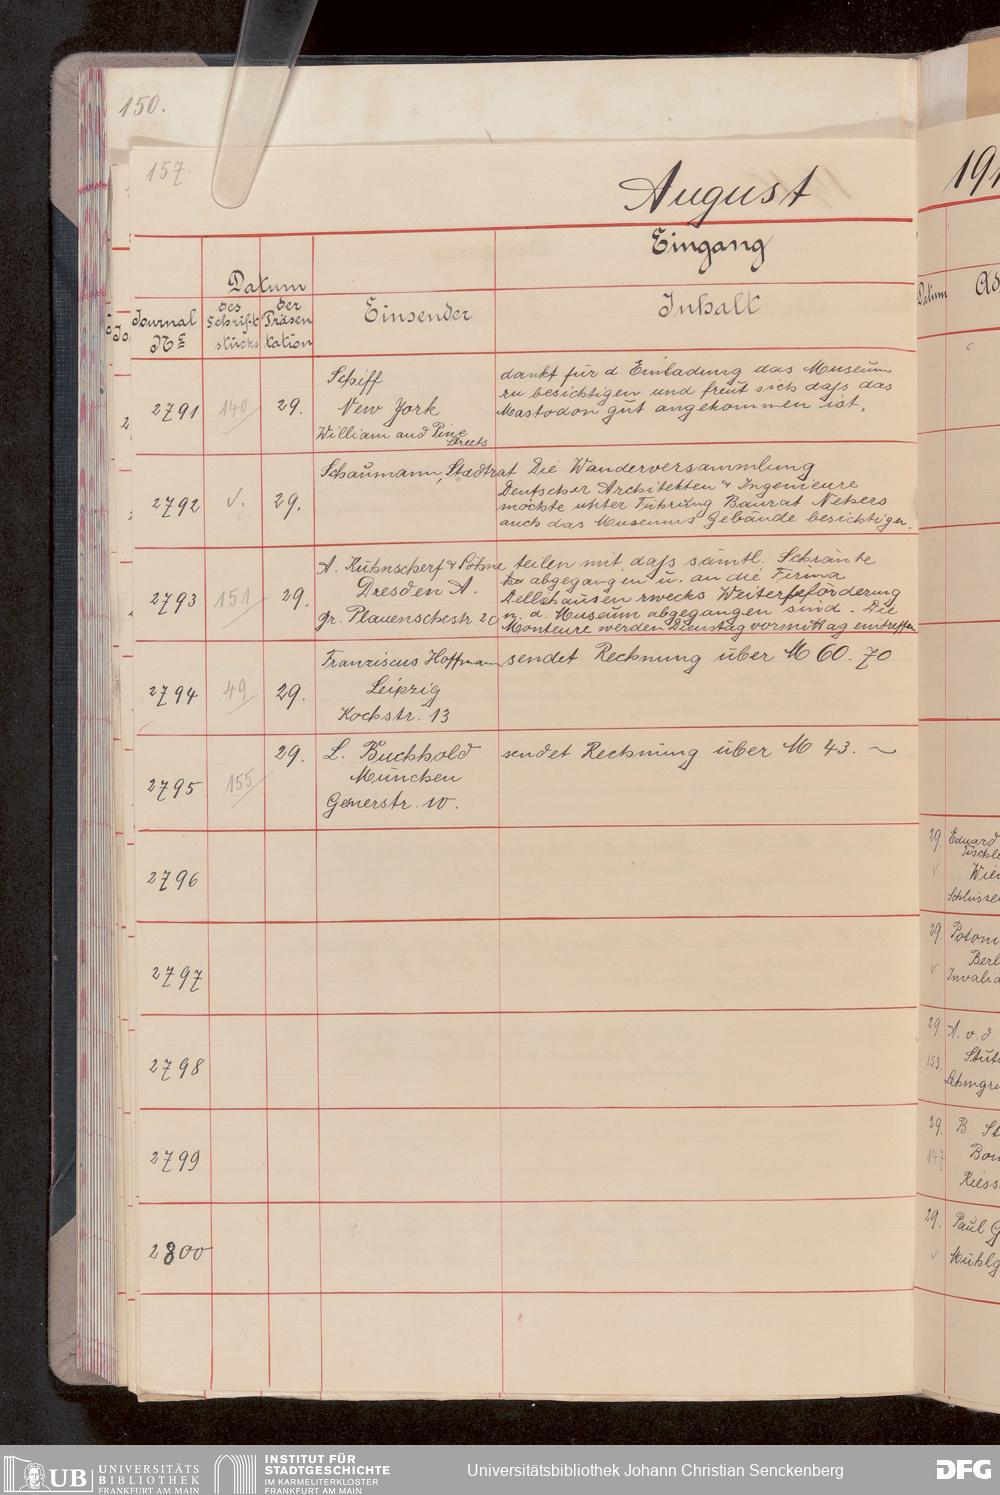 150.
157.
August
Eingang
Datum
Journal
No
des
Schrift-
stücks
der
Präsen
tation
Einsender
Inhalt
2791
140
29.
Schiff
New York
William and Pine
Streets
dankt für d Einladung das Museum
zu besichtigen und freut sich daß das
Mastodon gut angekommen ist.
2792
v.
29.
Schaumann, Stadtrat
Die Wanderversammlung
Deutscher Architekten & Ingenieure
möchte unter Führung Baurat Nehers
auch das Museums Gebäude besichtigen.
2793
151
29.
A. Kühnscherf & Söhne
Dresden A.
gr. Plauenschestr. 20
teilen mit, daß sämtl. Schränke
abgegangen u. an die Firma
Delliehausen zwecks Weiterbeförderung
n. d. Museum abgegangen sind. Die
Monteure werden Dienstag vormittag eintreffen
2794
49
29.
Franziscus Hoffmann
Leipzig
Kochstr. 13
sendet Rechnung über M 60.70
2795
155
29.
L. Buchhold
München
Generstr. 10.
sendet Rechnung über M 43. ~
2796
2797
2798
2799
2800
191
Datum
Ad
29.
Eduard
Tischle
Wien
Schlüssel
29.
Potoni
Berl
Invalid
29
A. v. d.
153.
Stutt
Lehmgru
29.
B. St
147
Bon
Riess
29.
Paul G
Mühlg
UB
UNIVERSITÄTS
BIBLIOTHEK
FRANKFURT AM MAIN
INSTITUT FÜR
STADTGESCHICHTE
IM KARMELITERKLOSTER
FRANKFURT AM MAIN
Universitätsbibliothek Johann Christian Senckenberg
DFG